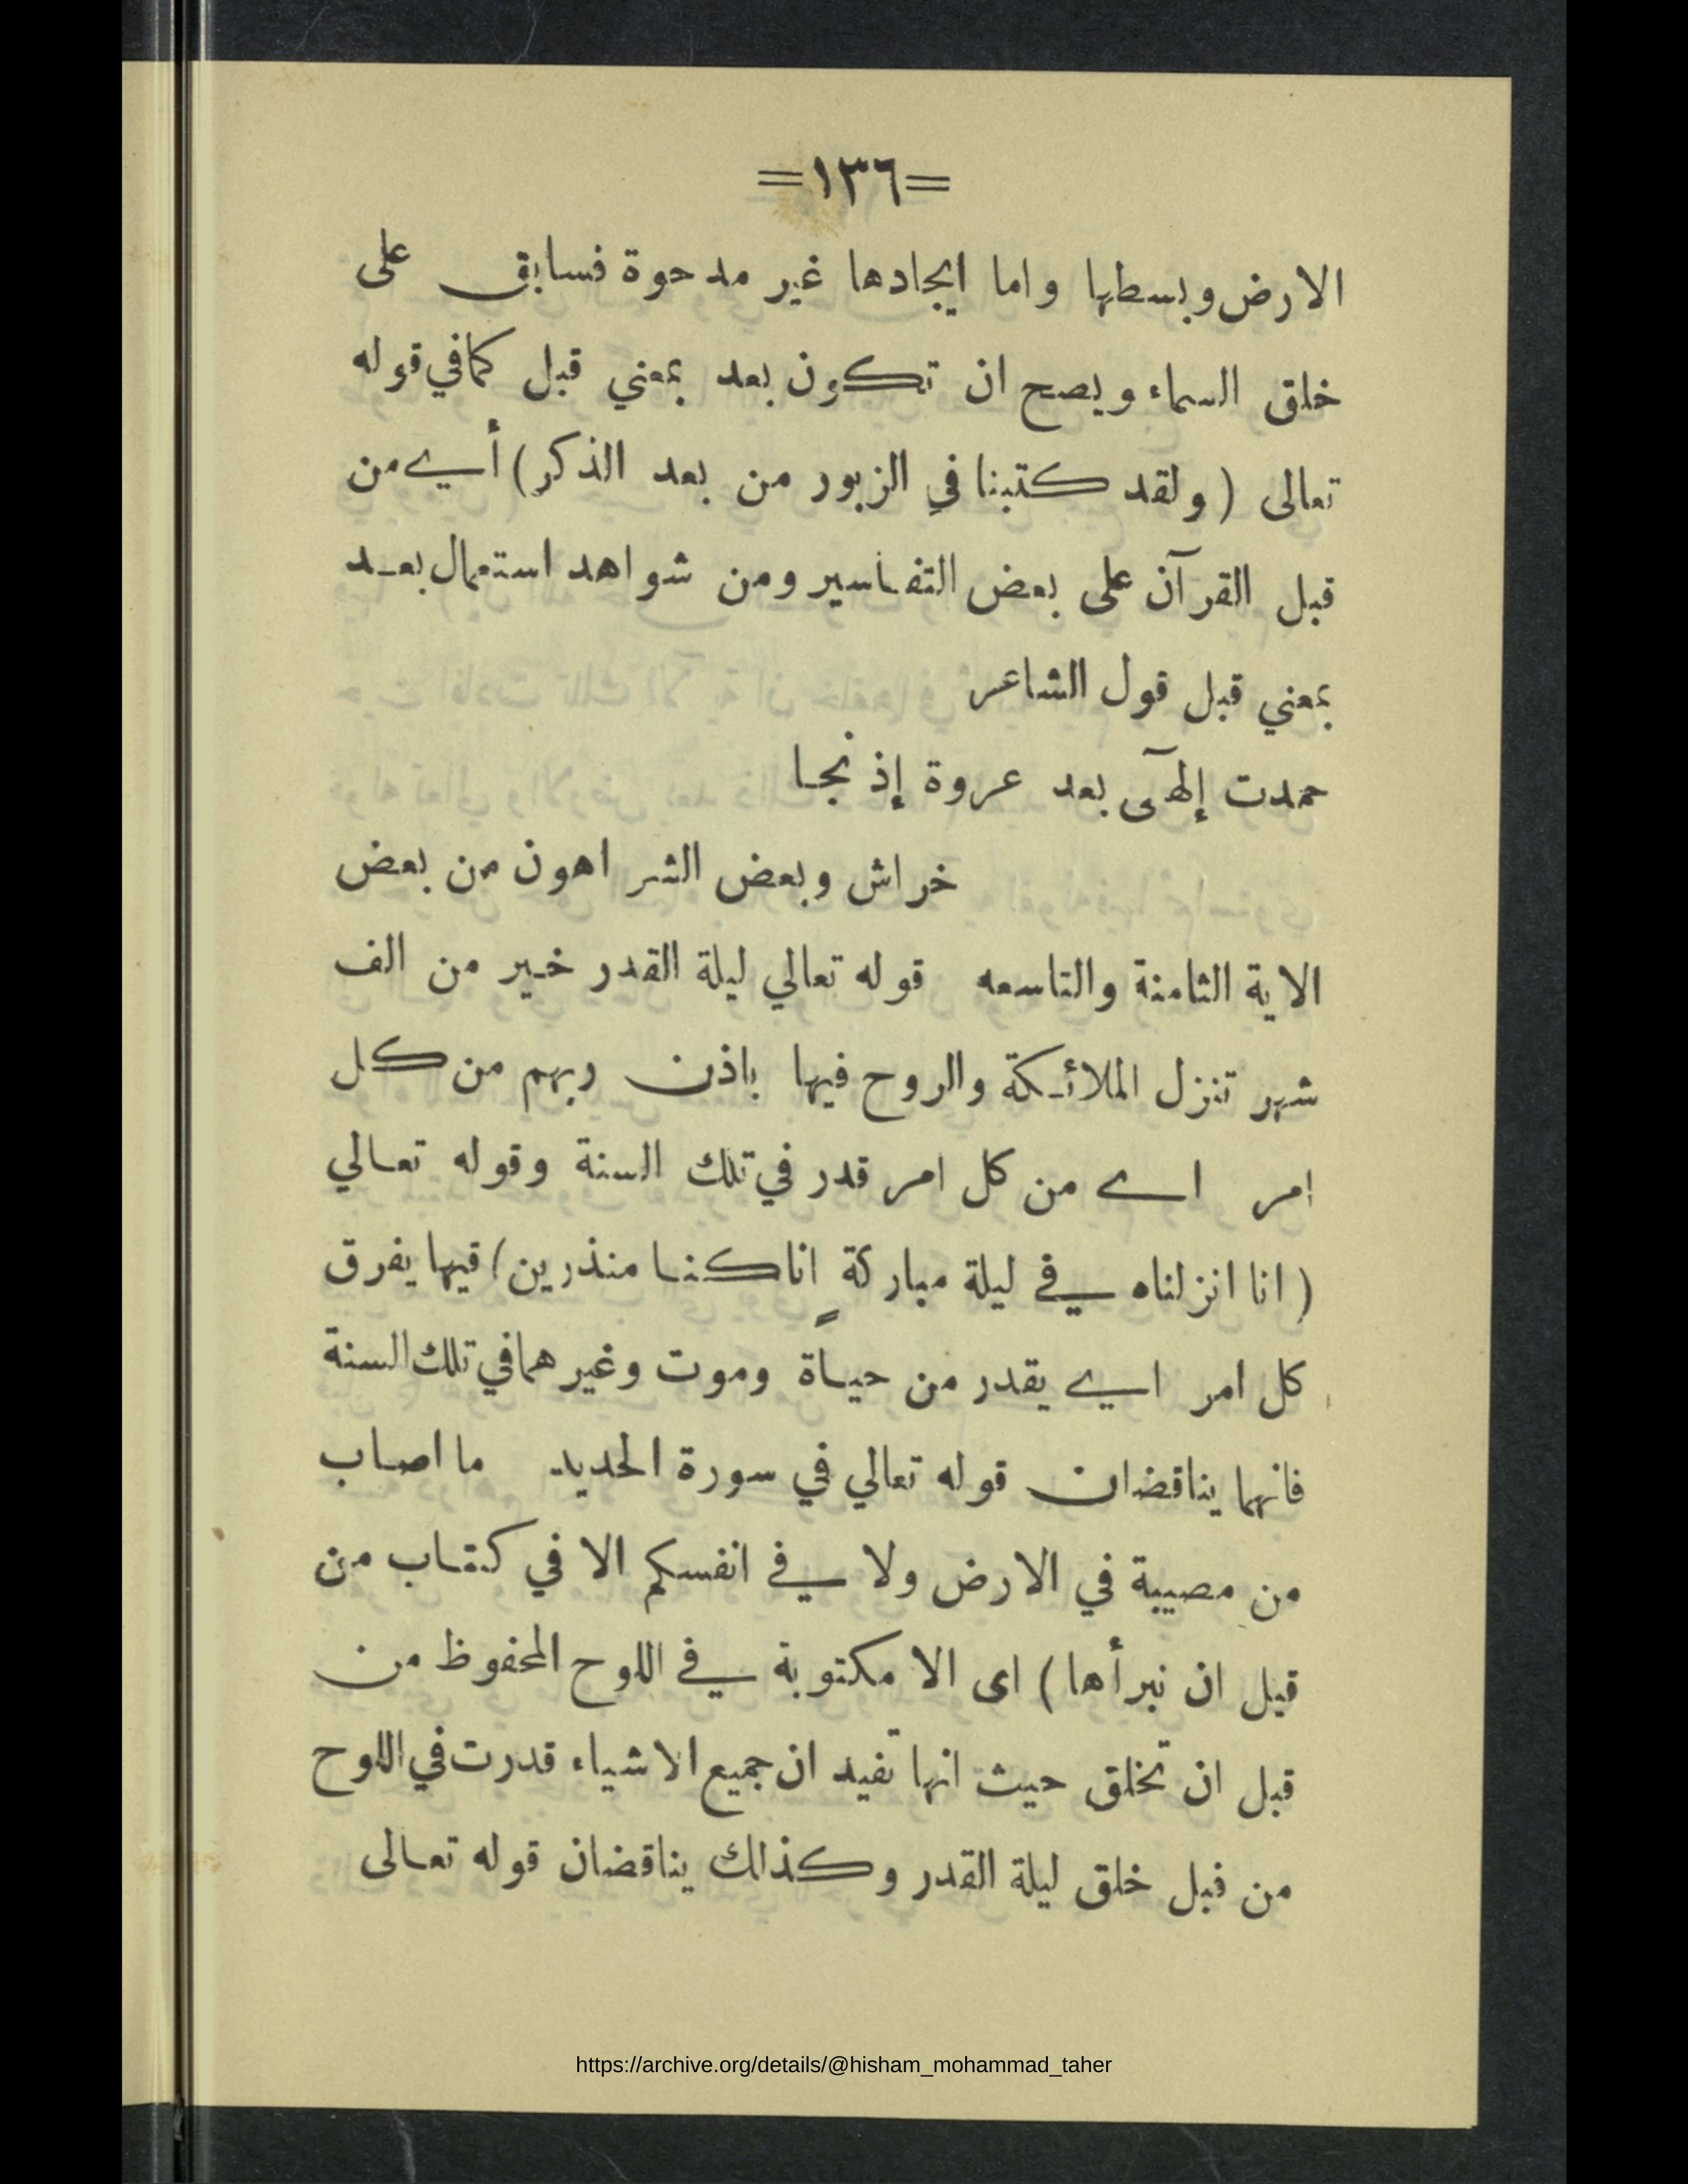 =١٣٦=
الارض وبسطها واما ايجادها غير مدحوة فسابق على
خلق السماء ويصح ان تكون بعد بمعني قبل كما في قوله
تعالى (ولقد كتبنا في الزبور من بعد الذكر) أي من
قبل القرآن على بعض التفاسير ومن شواهد استعمال بعد
بمعني قبل قول الشاعر
حمدت إلهي بعد عروة إذ نجا
خراش وبعض الشر اهون من بعض
الاية الثامنة والتاسعه قوله تعالي ليلة القدر خير من الف
شهر تنزل الملائكة والروح فيها باذن ربهم من كل
امر اے من كل امر قدر في تلك السنة وقوله تعالي
(انا انزلناه في ليلة مباركةٍ انا كنا منذرين) فيها يفرق
كل امر اي يقدر من حياة وموت وغيرهما في تلك السنة
فانهما يناقضان قوله تعالي في سورة الحديد ما اصاب
من مصيبة في الارض ولا في انفسكم الا في كتاب من
قبل ان نبرأها) اى الا مكتوبة في اللوح المحفوظ من
قبل ان تخلق حيث انها تفيد ان جميع الاشياء قدرت في اللوح
من قبل خلق ليلة القدر وكذلك يناقضان قوله تعالى
https://archive.org/details/@hisham_mohammad_taher